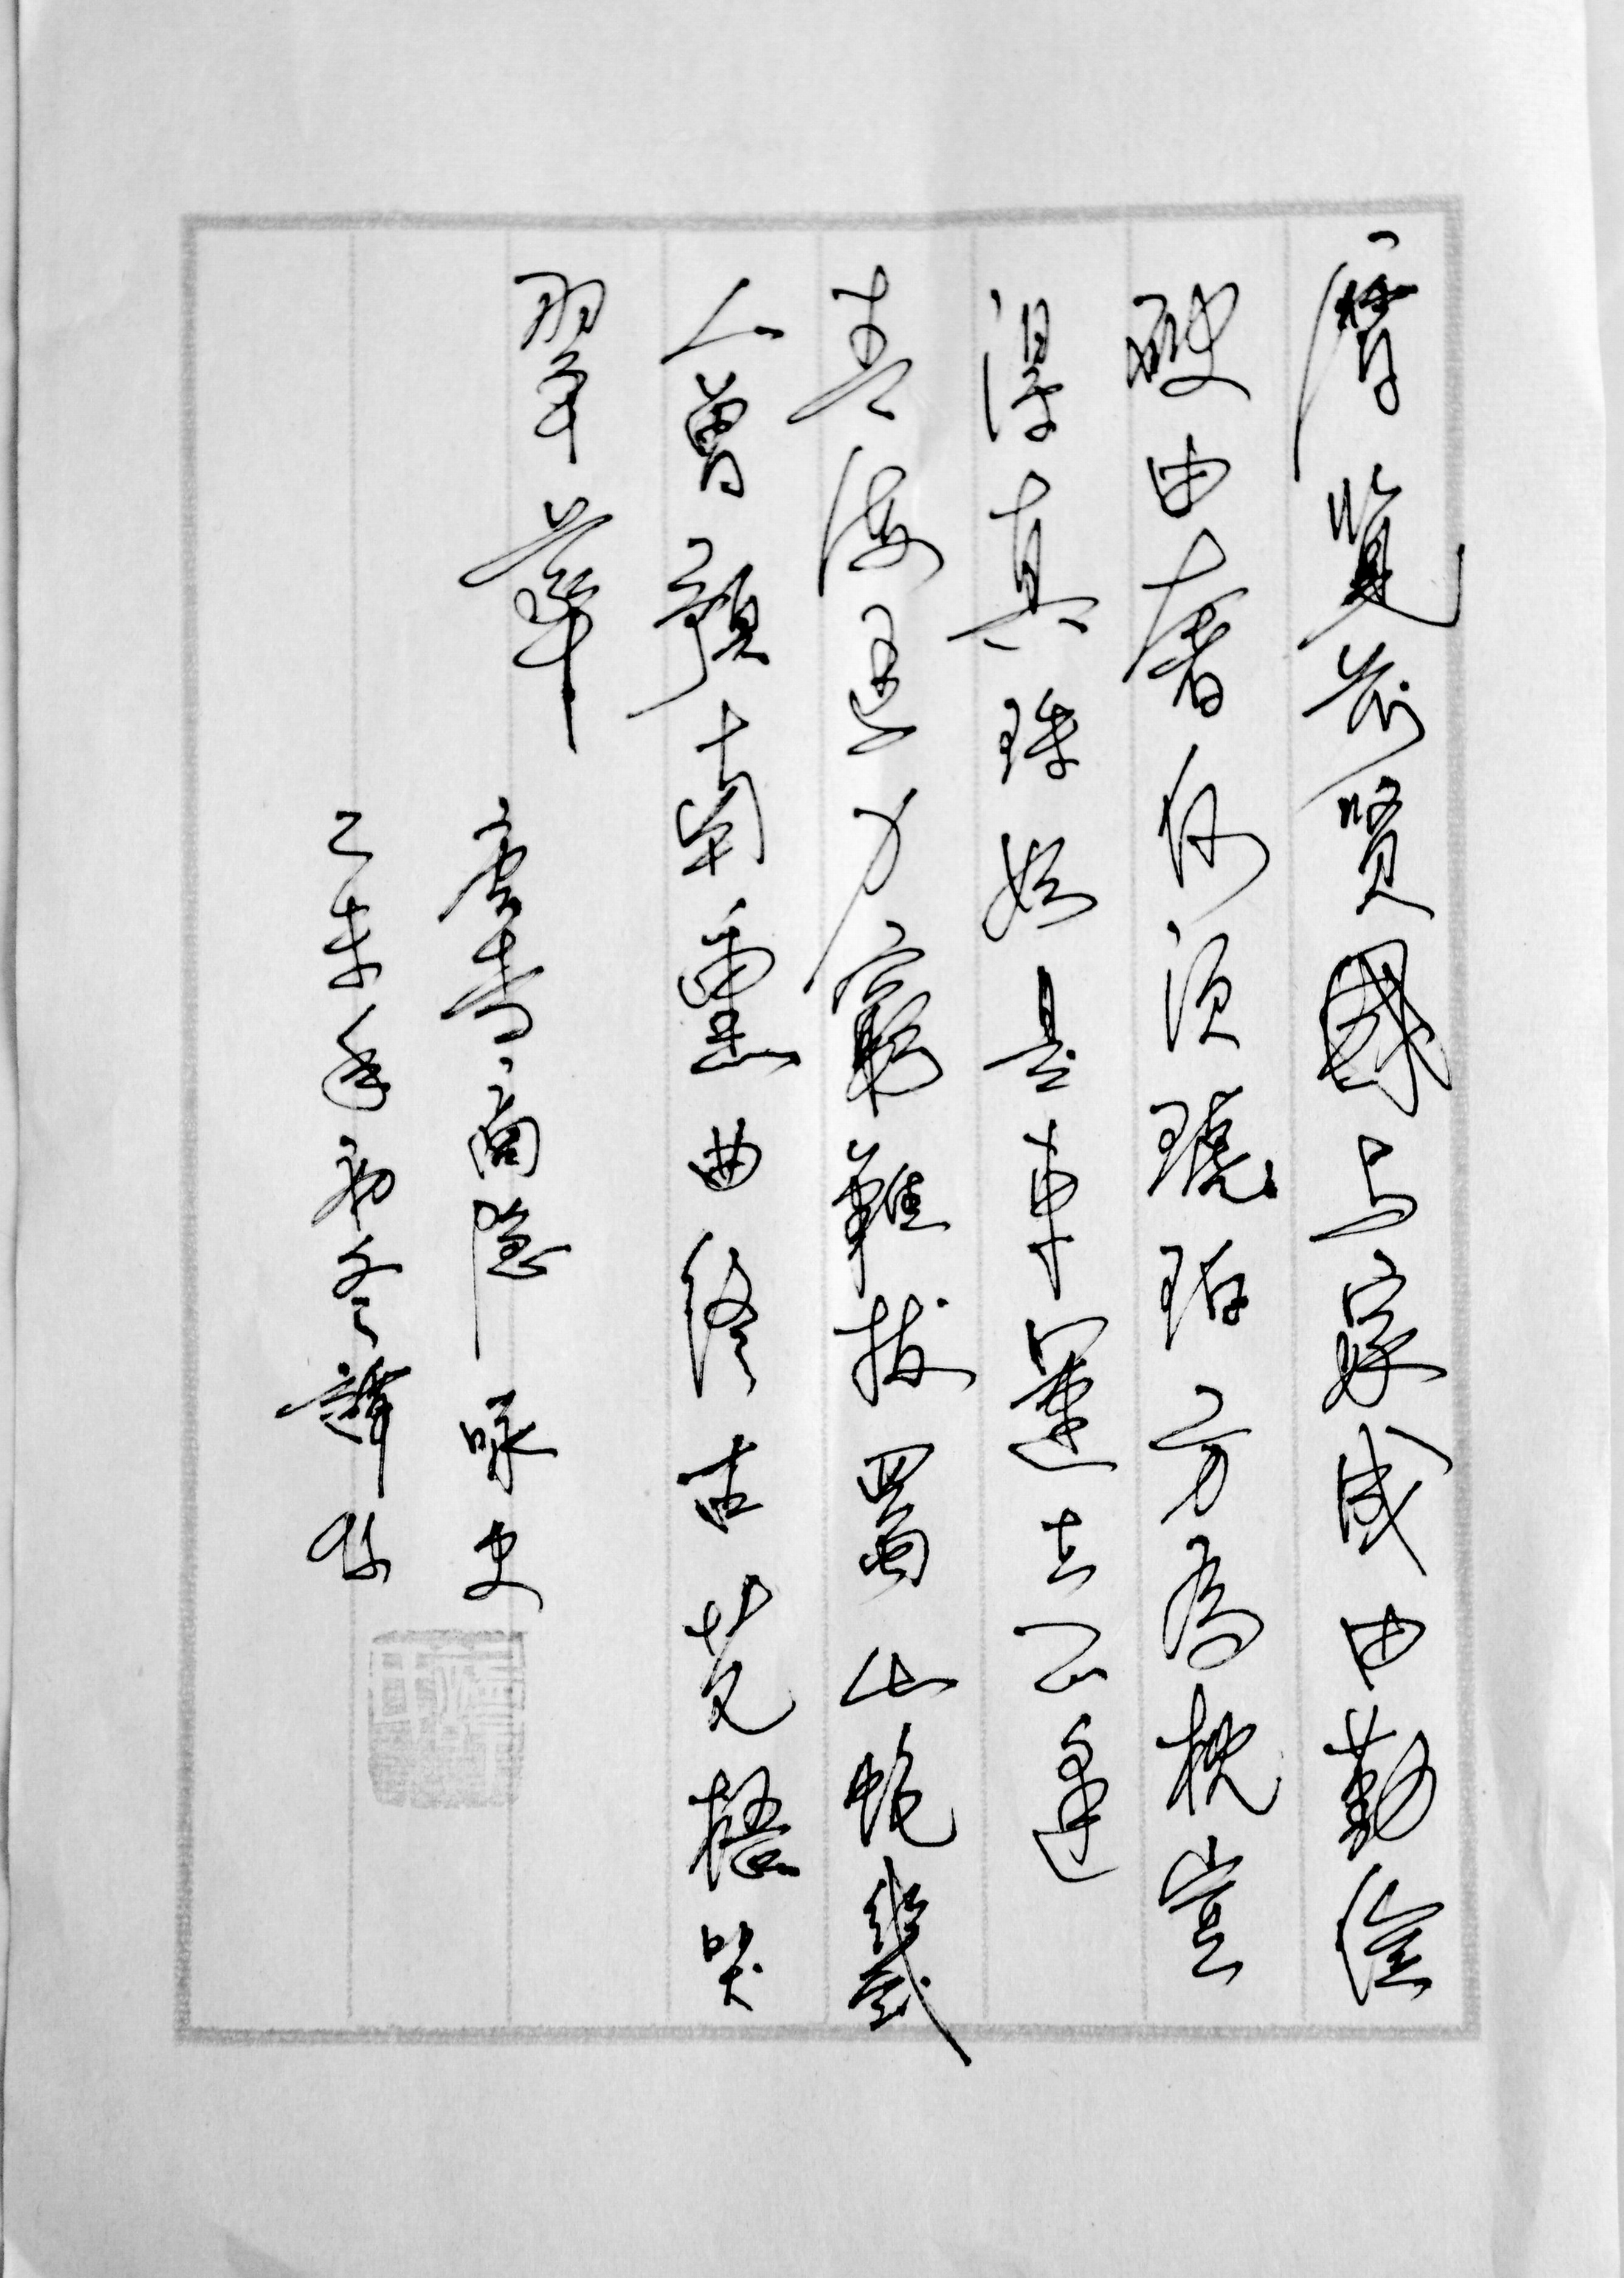 歷覽前賢國与家成由勤儉
破由奢何須琥珀方為枕豈
得真珠始是車運去不逢
青海馬力窮難拔蜀山蛇幾
人曾預南薰曲終古蒼梧哭
翠華
唐李商隱 咏史
乙未年初冬